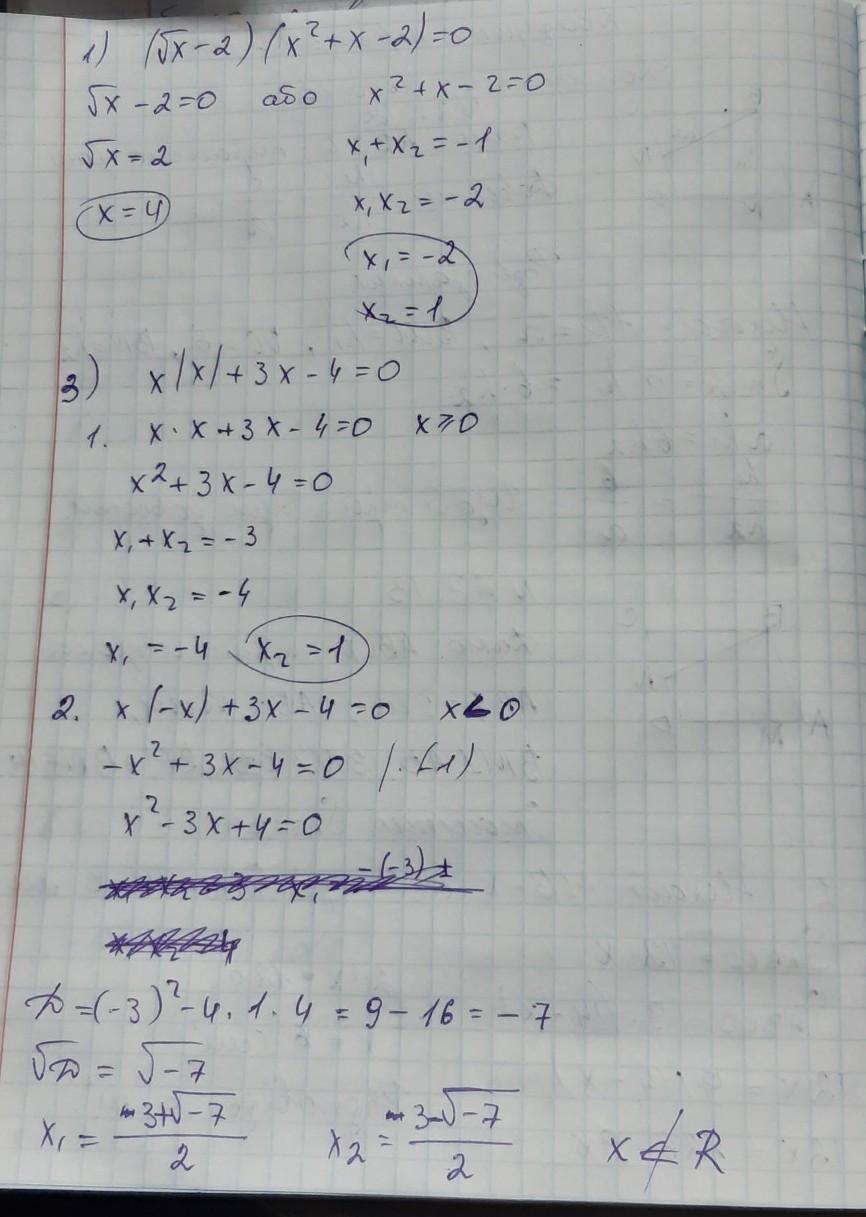 1) (√x - 2)(x² + x - 2) = 0
√x - 2 = 0 або x² + x - 2 = 0
√x = 2 x₁ + x₂ = -1
x = 4 x₁x₂ = -2
x₁ = -2
x₂ = 1
3) x|x| + 3x - 4 = 0
1. x · x + 3x - 4 = 0 x ≥ 0
x² + 3x - 4 = 0
x₁ + x₂ = -3
x₁x₂ = -4
x₁ = -4 x₂ = 1
2. x(-x) + 3x - 4 = 0 x < 0
-x² + 3x - 4 = 0 /·(-1)
x² - 3x + 4 = 0
-(-3) ±
D = (-3)² - 4 · 1 · 4 = 9 - 16 = -7
√D = √-7
x₁ = (3+√-7)/2 x₂ = (3-√-7)/2 x ∉ R